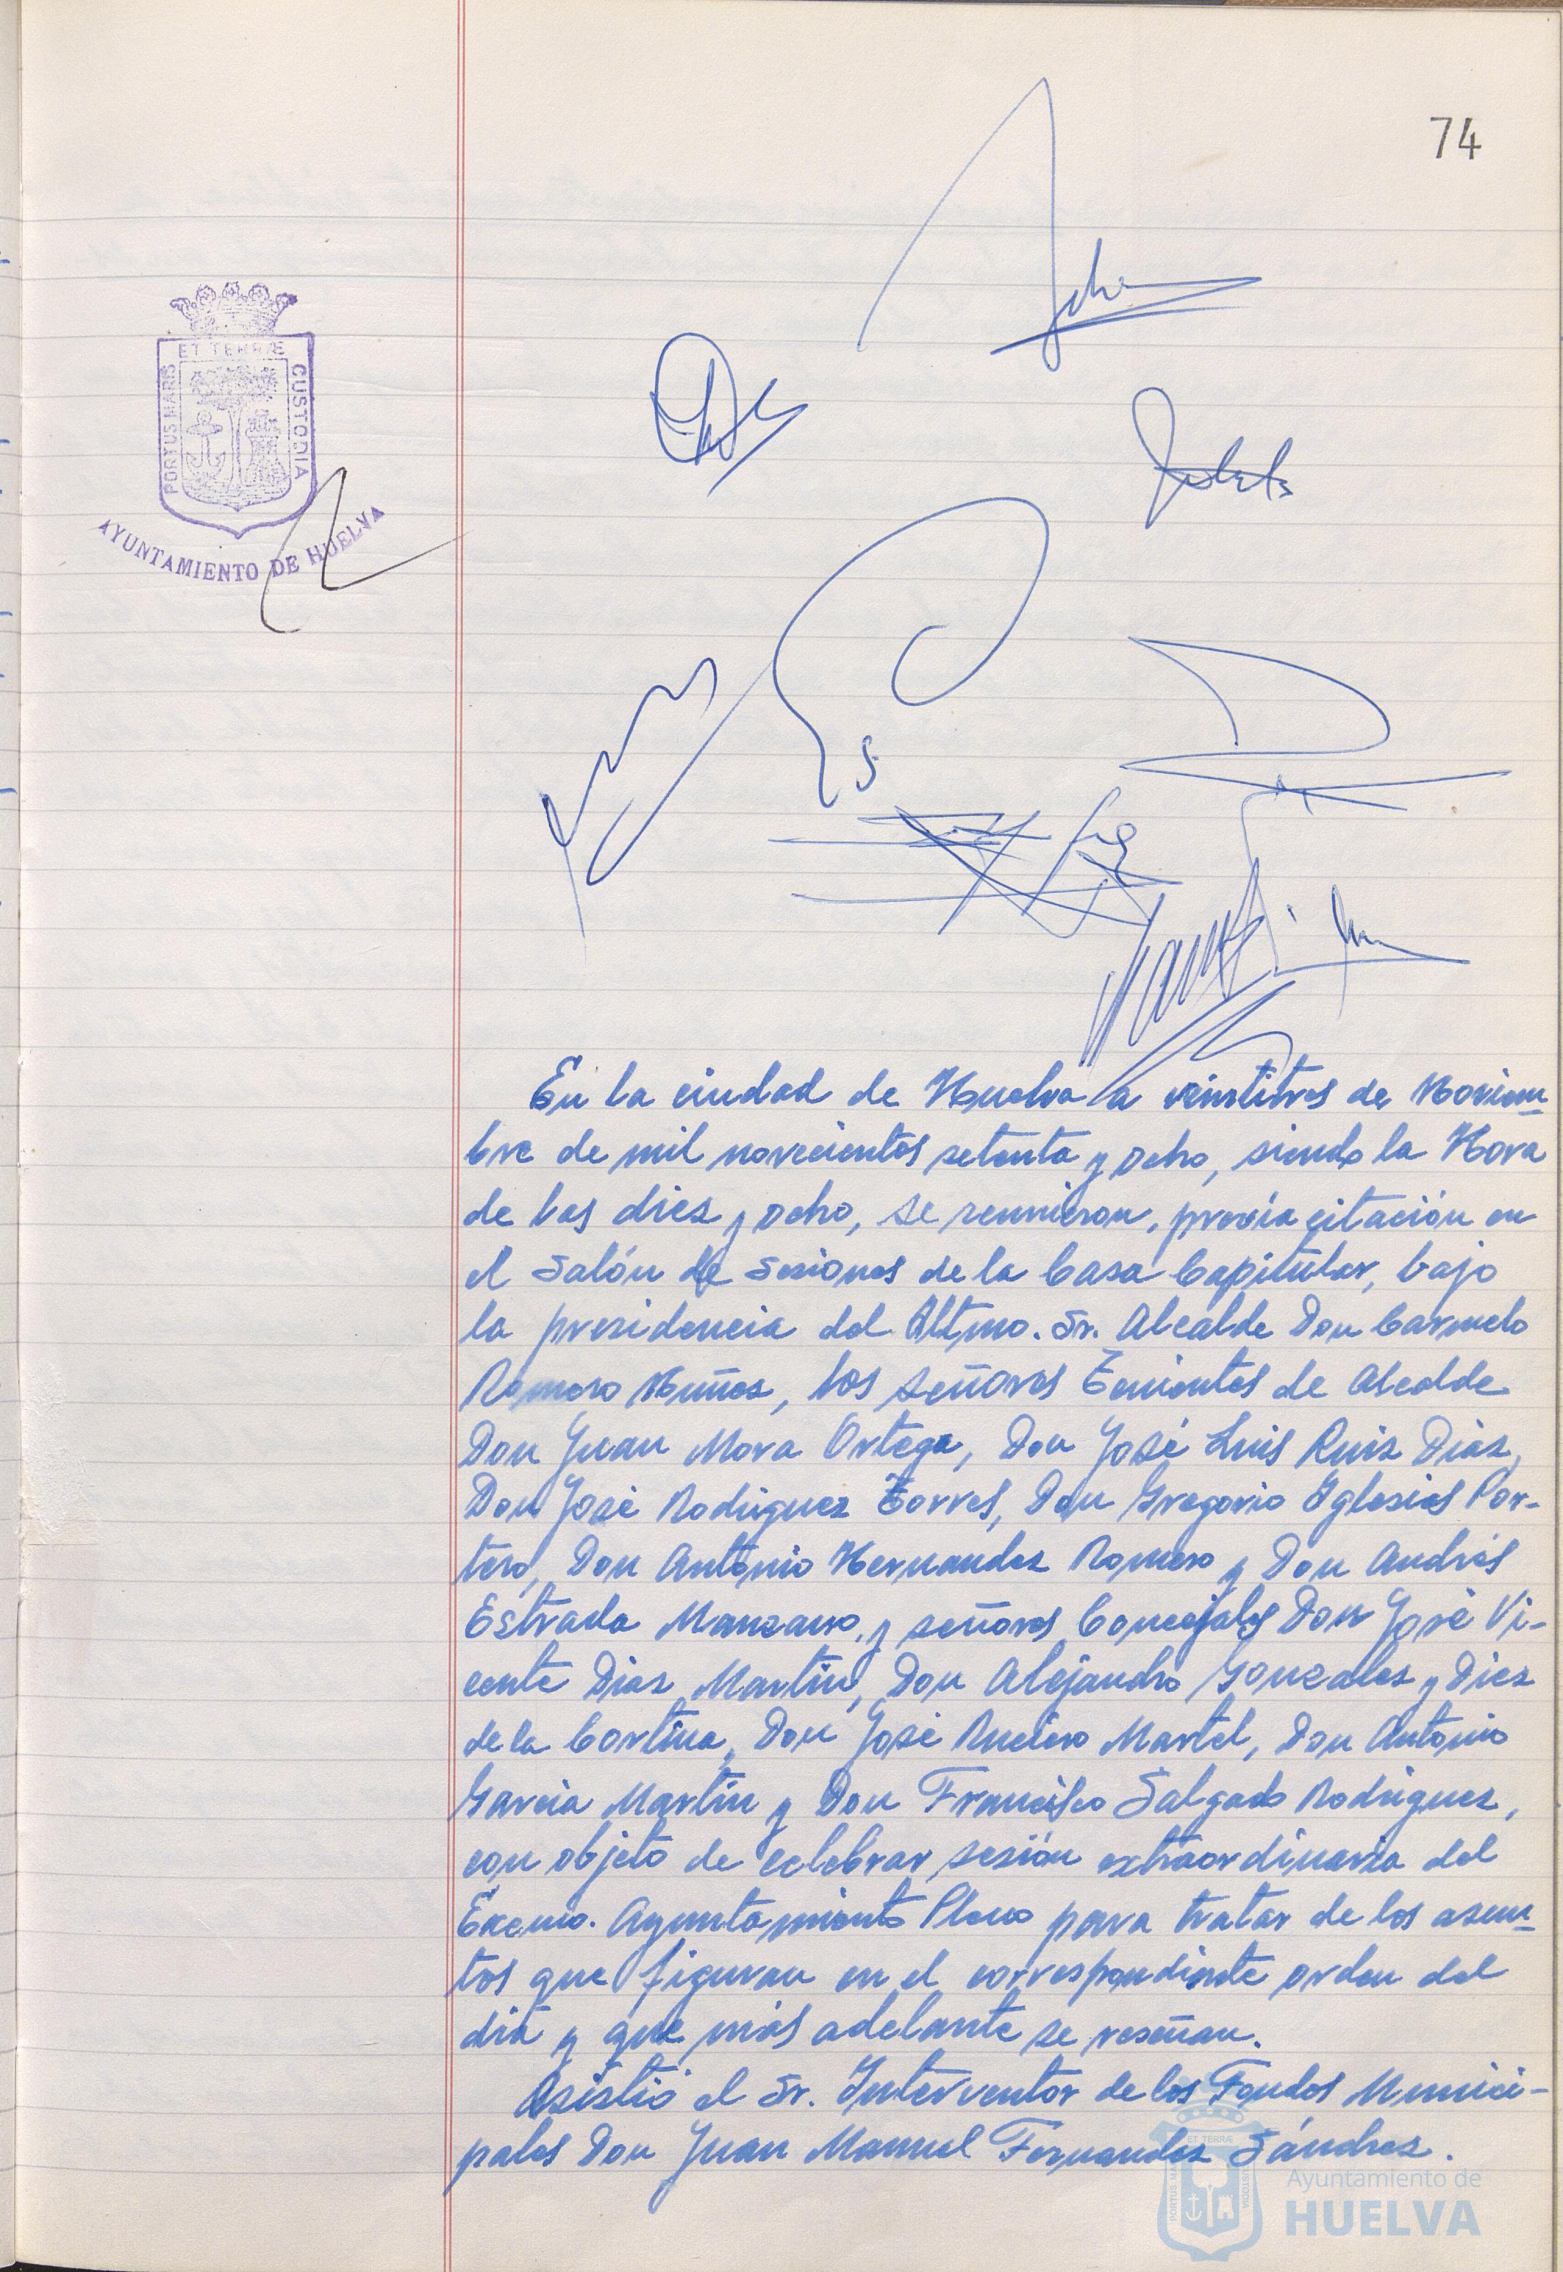 74
ET TERRÆ
PORTUS MARIS
CUSTODIA
AYUNTAMIENTO DE HUELVA
En la ciudad de Huelva a veintitres de Noviem-
bre de mil novecientos setenta y ocho, siendo la Hora
de las diez y ocho, se reunieron, previa citación en
el Salón de Sesiones de la Casa Capitular, bajo
la presidencia del Iltmo. Sr. Alcalde Don Carmelo
Romero Nuñez, los señores Tenientes de Alcalde
Don Juan Mora Ortega, Don José Luis Ruiz Diaz,
Don José Rodriguez Torres, Don Gregorio Iglesias Por-
tero, Don Antonio Hernandez Romero y Don Andrés
Estrada Manzano, y señores Concejales Don José Vi-
cente Diaz Martin, Don Alejandro Gonzalez y Diez
de la Cortina, Don José Runcero Martel, Don Antonio
Garcia Martin y Don Francisco Salgado Rodriguez,
con objeto de celebrar sesión extraordinaria del
Excmo. Ayuntamiento Pleno para tratar de los asun-
tos que figuran en el correspondiente orden del
dia y que más adelante se reseñan.
Asistió el Sr. Interventor de los Fondos Munici-
pales Don Juan Manuel Fernandez Sánchez.
Ayuntamiento de
HUELVA